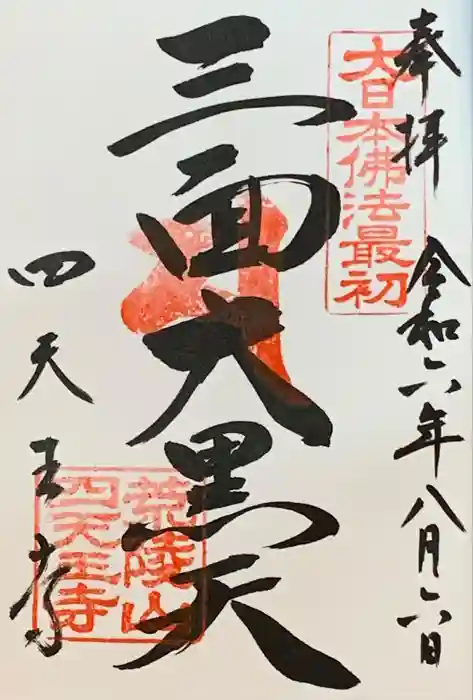 奉拝 令和六年八月六日
大日本佛法最初
三面大黒天
四天王寺
荒陵山
四天王寺